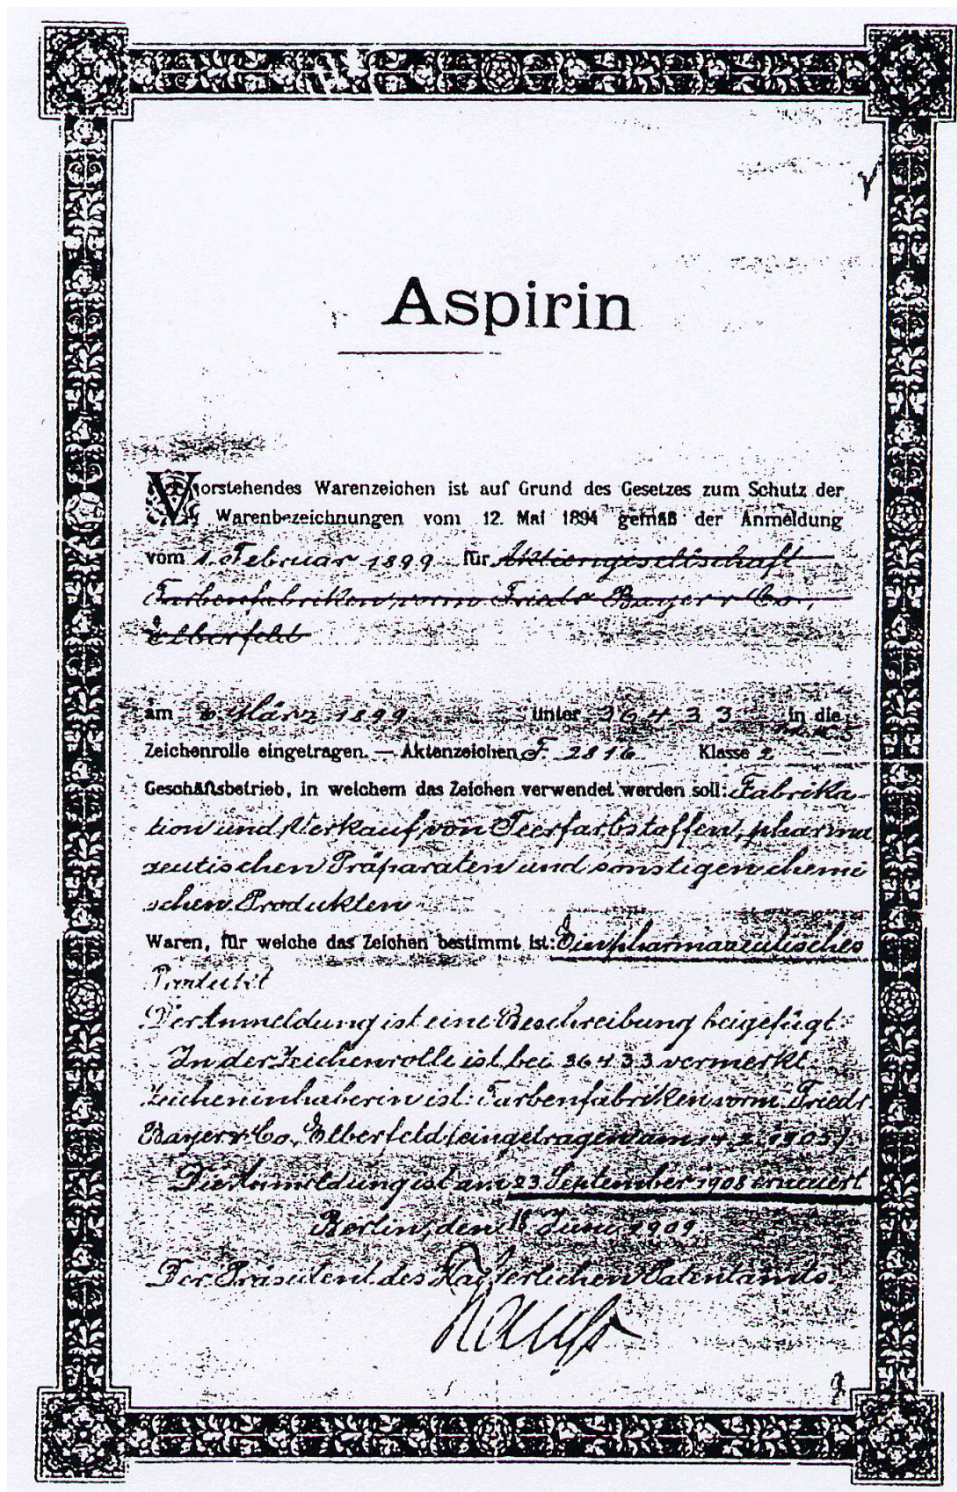 Aspirin
Vorstehendes Warenzeichen ist auf Grund des Gesetzes zum Schutz der
Warenbezeichnungen vom 12. Mai 1894 gemäß der Anmeldung
vom 1. Februar 1899 für Aktiengesellschaft
Farbenfabriken vorm Friedr Bayer & Co,
Elberfeld
am 6. März 1899 unter 36433 in die
Zeichenrolle eingetragen. — Aktenzeichen F. 2816 Klasse 2
Geschäftsbetrieb, in welchem das Zeichen verwendet werden soll: Fabrika-
tion und Verkauf von Teerfarbstoffen, pharma
zeutischen Präparaten und sonstigen chemi
schen Produkten
Waren, für welche das Zeichen bestimmt ist: Ein pharmazeutisches
Produkt
Der Anmeldung ist eine Beschreibung beigefügt.
In der Zeichenrolle ist bei 36433 vermerkt
Zeicheninhaberin ist: Farbenfabriken vorm Friedr.
Bayer & Co, Elberfeld (eingetragen am 14. 2. 1905)
Die Anmeldung ist am 23. September 1908 erneuert
Berlin, den Juni 1909
Der Präsident des Kaiserlichen Patentamts.